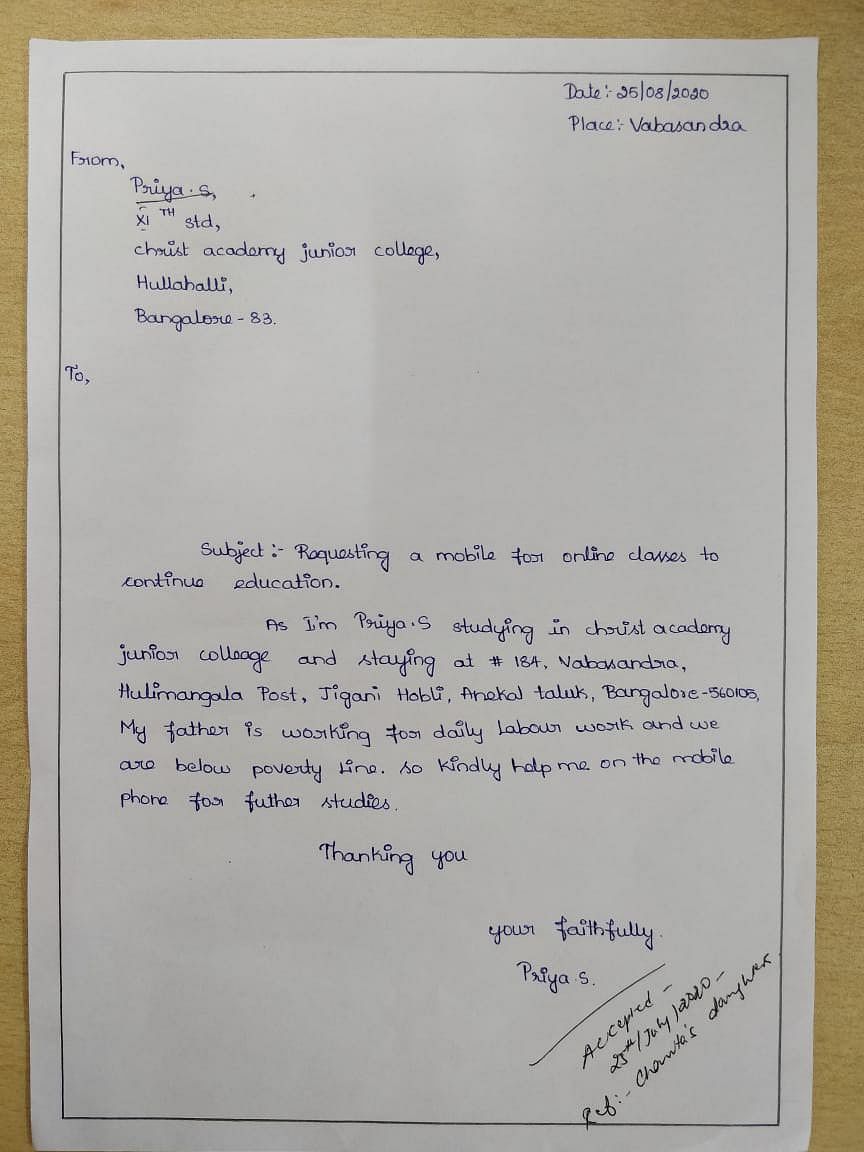 Date:- 25/08/2020
Place:- Vabasandra
From,
Priya.S,
XI TH std,
christ academy junior college,
Hullahalli,
Bangalore - 83.
To,
Subject :- Requesting a mobile for online classes to
continue education.
As I'm Priya.S studying in christ academy
junior colleage and staying at # 184, Vabasandra,
Hulimangala Post, Jigani Hobli, Anekal taluk, Bangalore-560105,
My father is working for daily Labour work and we
are below poverty line. so kindly help me on the mobile
phone for futher studies.
Thanking you
your faithfully.
Priya.S.
Accepted -
25th/July/2020 -
Ref:- daughter